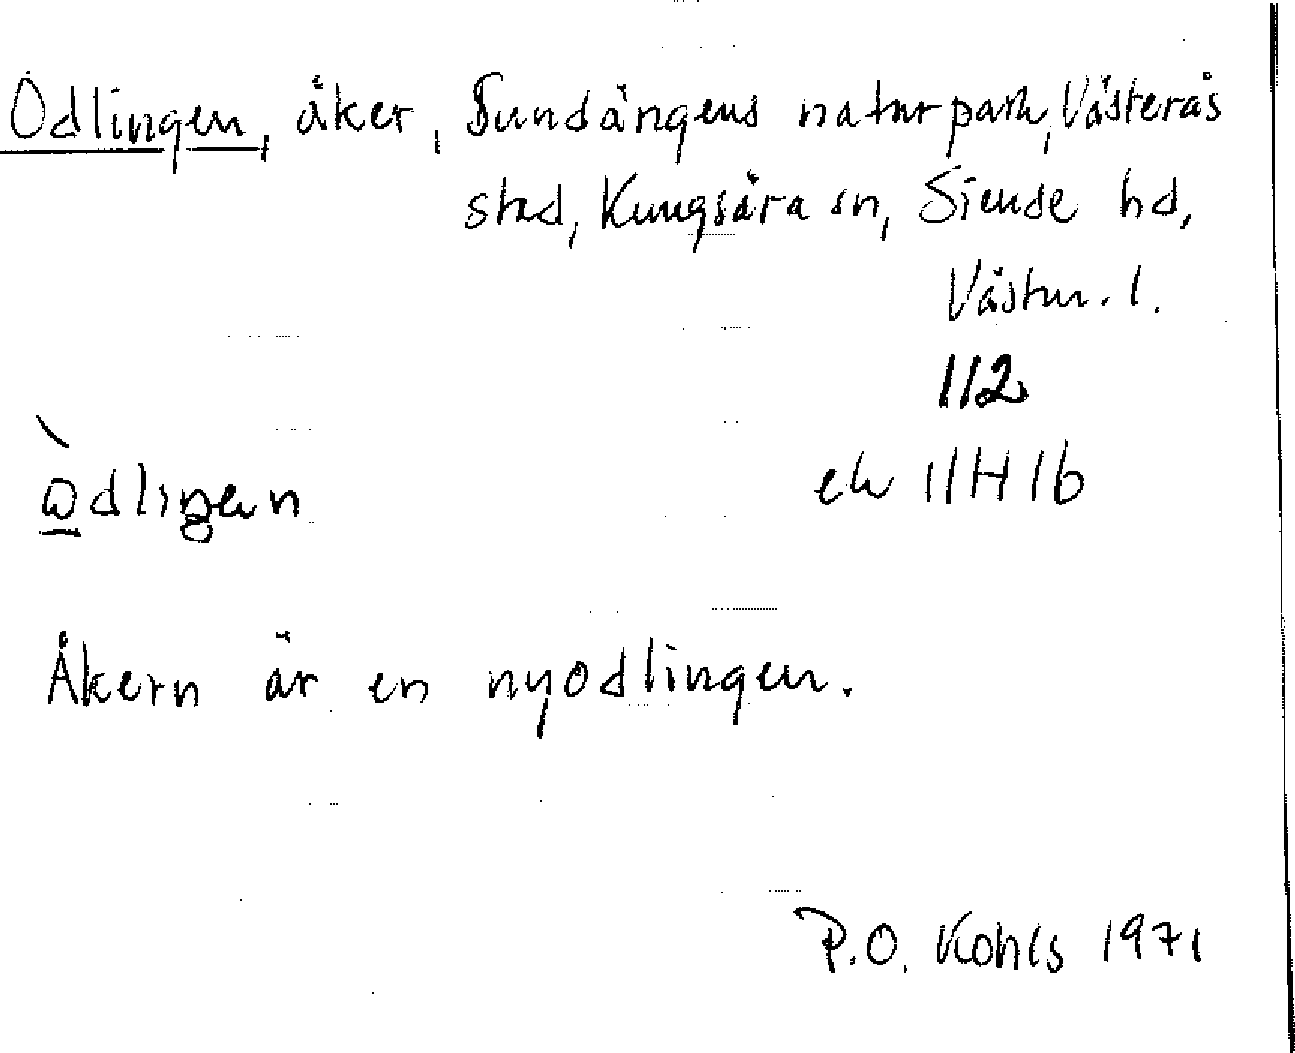 Odlingen, åker, Sundängens naturpark, Västerås
stad, Kungsåra sn, Siende hd,
Västm. l.
112
ek 11H 1b
òdliŋen
Åkern är en nyodlingen.
P.O. Kohls 1971